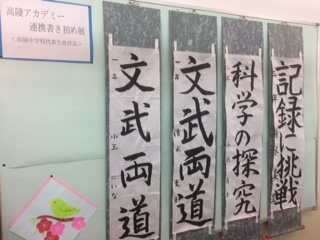 高陵アカデミー
連携書き初め展
<高陵中学校代表生徒作品>
記録に挑戦
科学の探究
文武両道
一年
文武両道
一年